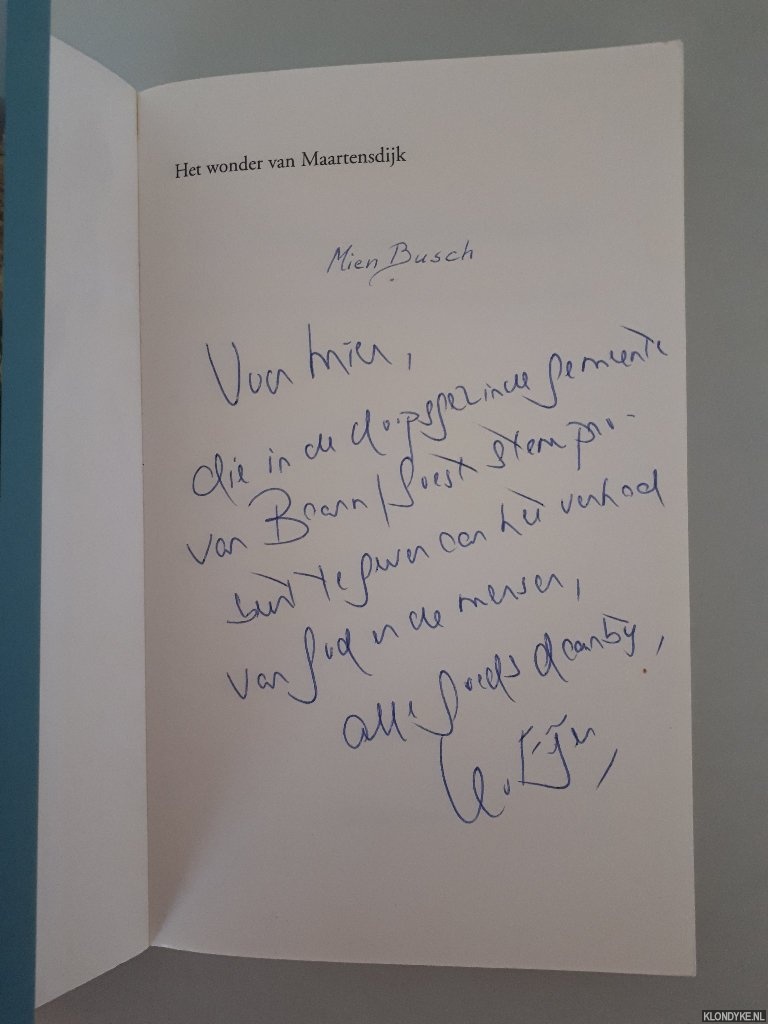 Het wonder van Maartensdijk
Mien Busch
Voor Mien,
die in de doopsgezinde gemeente
van Baarn/Soest stem pro-
beert te geven aan het verhaal
van God en de mensen,
alle goeds daarbij,
KLONDYKE.NL